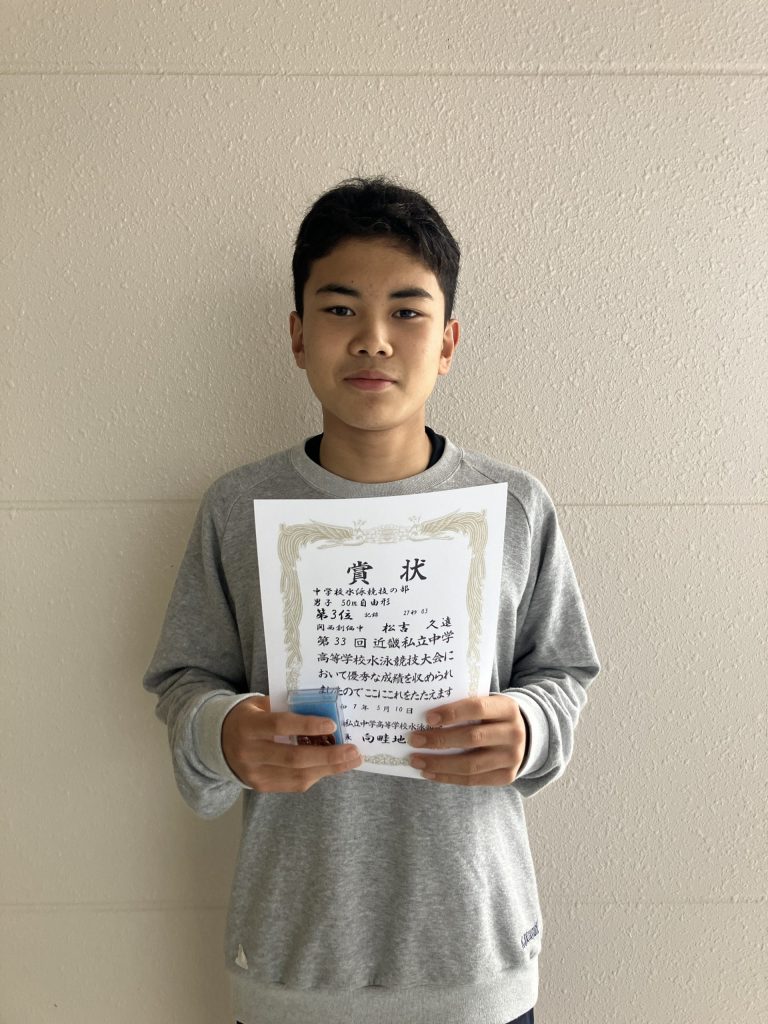 賞状
中学校水泳競技の部
男子 50m自由形
第3位 記録 27秒03
関西創価中 松吉 久遠
第33回近畿私立中学
高等学校水泳競技大会に
おいて優秀な成績を収められ
ましたのでここにこれをたたえます
和7年5月10日
私立中学高等学校水泳
向畦地